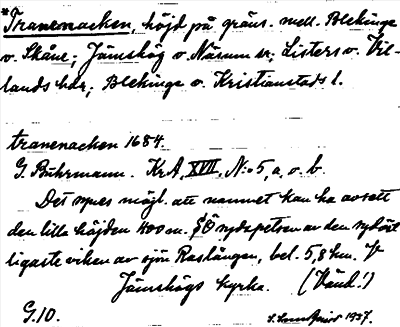 *Tranenacken, höjd på gräns. mell. Blekinge
o. Skåne; Jämshög o. Näsum sr; Listers o. Vil-
lands hdr; Blekinge o. Kristianstads l.
tranenacken 1684.
G. Buhrmann. KrA, XVII, N:o 5, a, o. b.
Det synes möjl. att namnet kan ha avsett
den lilla höjden 400 m. SÖ sydspetsen av den sydöst
ligaste viken av sjön Raslången, bel. 5,8 km. V
Jämshögs kyrka. (Vänd!)
G.10. 1937.